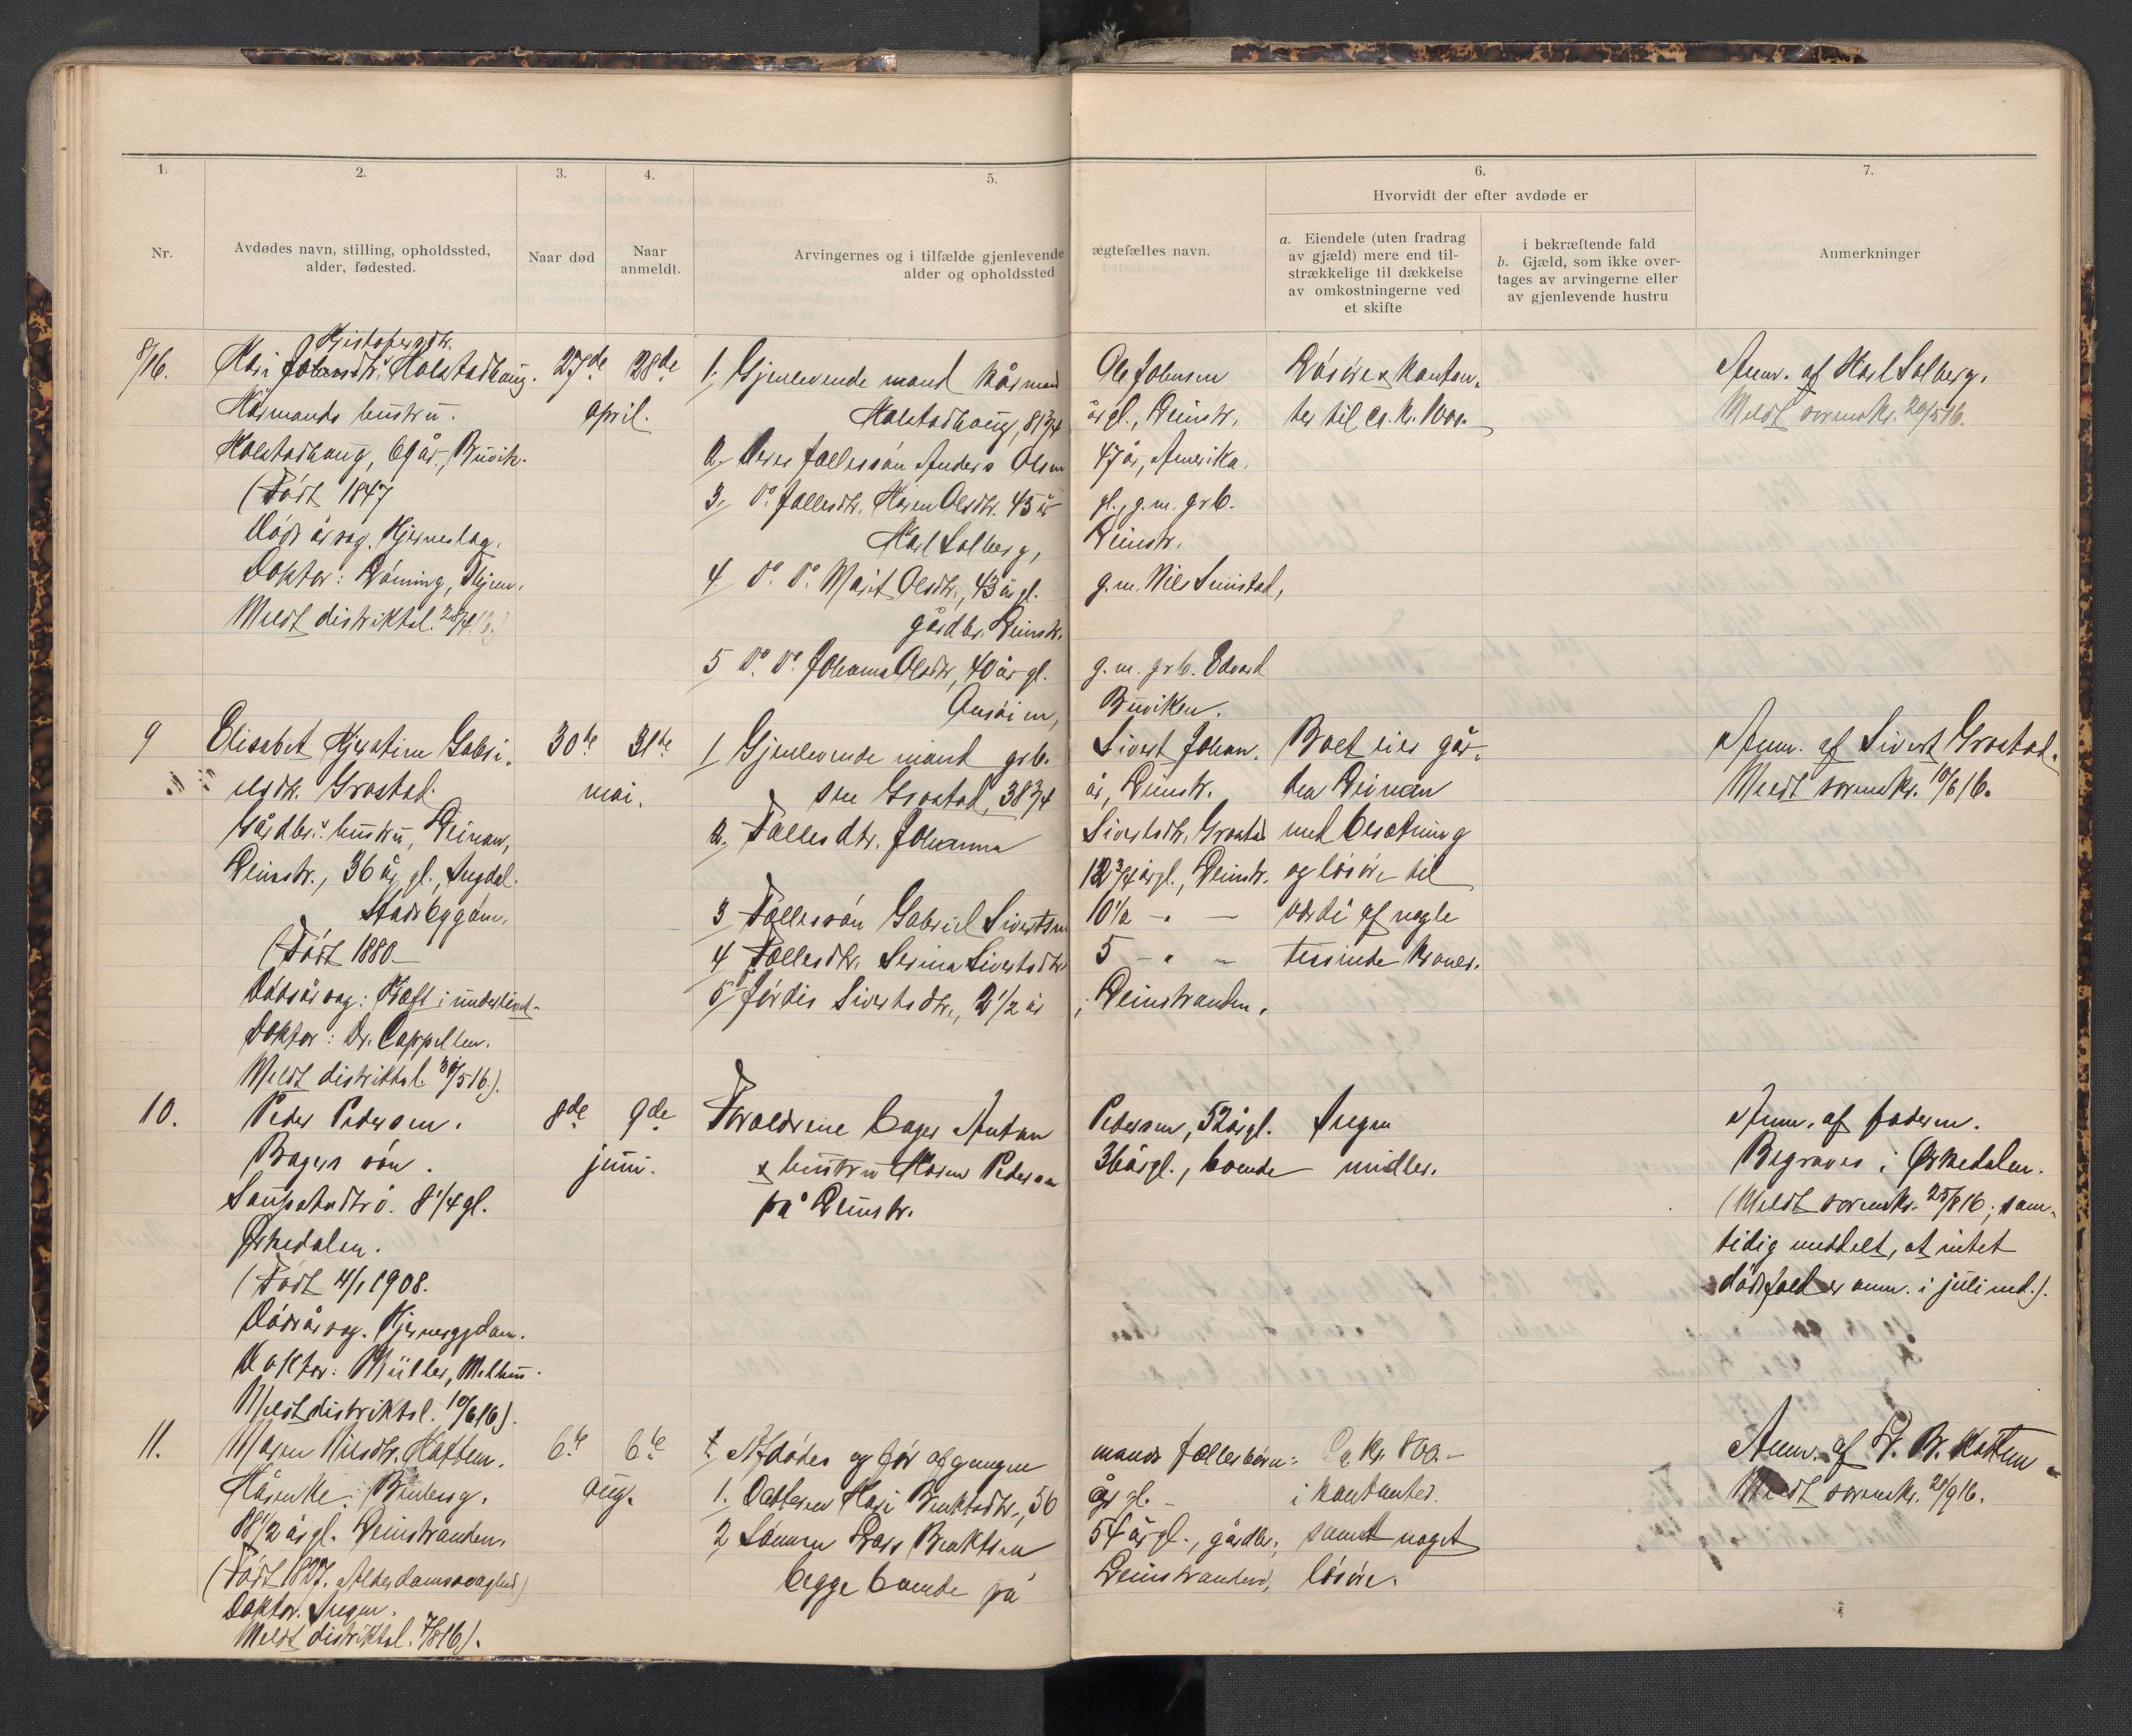 1.
2.
3.
4.
5.
6.
7.
Nr.
Avdødes navn, stilling, opholdssted,
alder, fødested.
Naar død
Naar
anmeldt.
Arvingernes og i tilfælde gjenlevende ægtefælles navn.
alder og opholdssted
Hvorvidt der efter avdøde er
a. Eiendele (uten fradrag
av gjæld) mere end til-
strækkelige til dækkelse
av omkostningerne ved
et skifte
i bekræftende fald
b. Gjæld, som ikke over-
tages av arvingerne eller
av gjenlevende hustru
Anmerkninger
8/16.
Kristofersdtr.
Kari Johnsdtr. Holstadhaug.
Kårmands hustru.
Holstadhaug, 69 år, Buvik.
(Født 1847
Dødsårsag. Hjerneslag.
Doktor: Dørning, Thjem.
Meldt distriktsl. 28/4
27de
28de
april.
1. Gjenlevende mand kårmand Ole Johnsen
Holstadhaug, 81 3/4 årgl., Leinstr.
2. Deres fællessøn Anders Olsen 47 år, Amerika.
3. Do. fællesdtr. Karen Olsdtr. 45 år gl., g.m. grb.
Karl Solberg, Leinstr.
4. Do. Do. Marit Olsdtr., 43 årgl. g.m. Nils Simistad,
gårdbr. Leinstr.
5 Do. Do. Johanna Olsdtr., 40 år gl. g.m. grb. Edvard
Onsøien, Buviken.
Løsøre & kontan-
ter til ca. kr. 1000.
Anm. af Karl Solberg.
Meldt sorenskr. 20/5 16.
9
Elisabet Kjerstine Gabri-
elsdtr. Grostad.
Gårdbr.s hustru, Leinan,
Leinstr., 36 år gl., Ingdal.
Stadsbygden.
(Født 1880.
Dødsårsag: Kræft i underlivet.
Doktor: Dr. Cappelen.
Meldt distriktsl. 31/5 16.).
30te
31te
mai.
1 Gjenlevende mand grb. Sivert Johan-
sen Grostad, 38 3/4 år, Leinstr.
2. Fællesdtr. Johanna Sivertsdtr. Grostad
12 3/4 årgl., Leinstr.
3 Fællessøn Gabriel Sivertsen 10 1/2 - " -
4 Fællesdtr. Serina Sivertsdtr 5 - " -
5 Do Jørdis Sivertsdtr., 2 1/2 år ; Leinstranden.
Boet eier går-
den Leinan
med besætning
og løsøre til
værdi af nogle
tusinde kroner.
Anm. af Sivert Grostad.
Meldt sorenskr. 10/6 16.
10.
Peder Pedersen.
Bagers søn.
Saupstadtrø. 8 1/4 gl.
Ørkedalen.
(Født 4/1 1908.
Dødsårsag. Hjernegydom.
Doktor: Müller, Melhus.
Meldt distriktsl. 10/6 16).
8de
9de
juni.
Forældrene bager Anton Pedersen, 52 årgl.
& hustru Karen Pedersen 36 årgl., boende
på Leinstr.
Ingen
midler.
Anm. af faderen.
Begraves i Ørkedalen.
(Meldt sorenskr. 25/8 16; sam-
tidig meddelt, at intet
dødsfald er anm. i juli md.).
11.
Maren Nilsdtr. Hattem.
Kårenke. Benberg.
88 1/2 årgl. Leinstranden.
(Født 1827. Alderdomssvaghed)
Doktor. Ingen.
Meldt distriktsl. 7/8 16).
6te
6te
aug.
Afdødes og før afgangne mands fællesbørn:
1. Datteren Kari Bentsdtr., 56 år gl. -
2 Sønnen Lars Bentsen 54 år gl., gårdbr.,
begge boende på Leinstranden,
Ca kr. 800.-
i kontanter.
samt noget
løsøre.
Anm. af B. Hattem
Meldt sorenskr. 20/9 16.